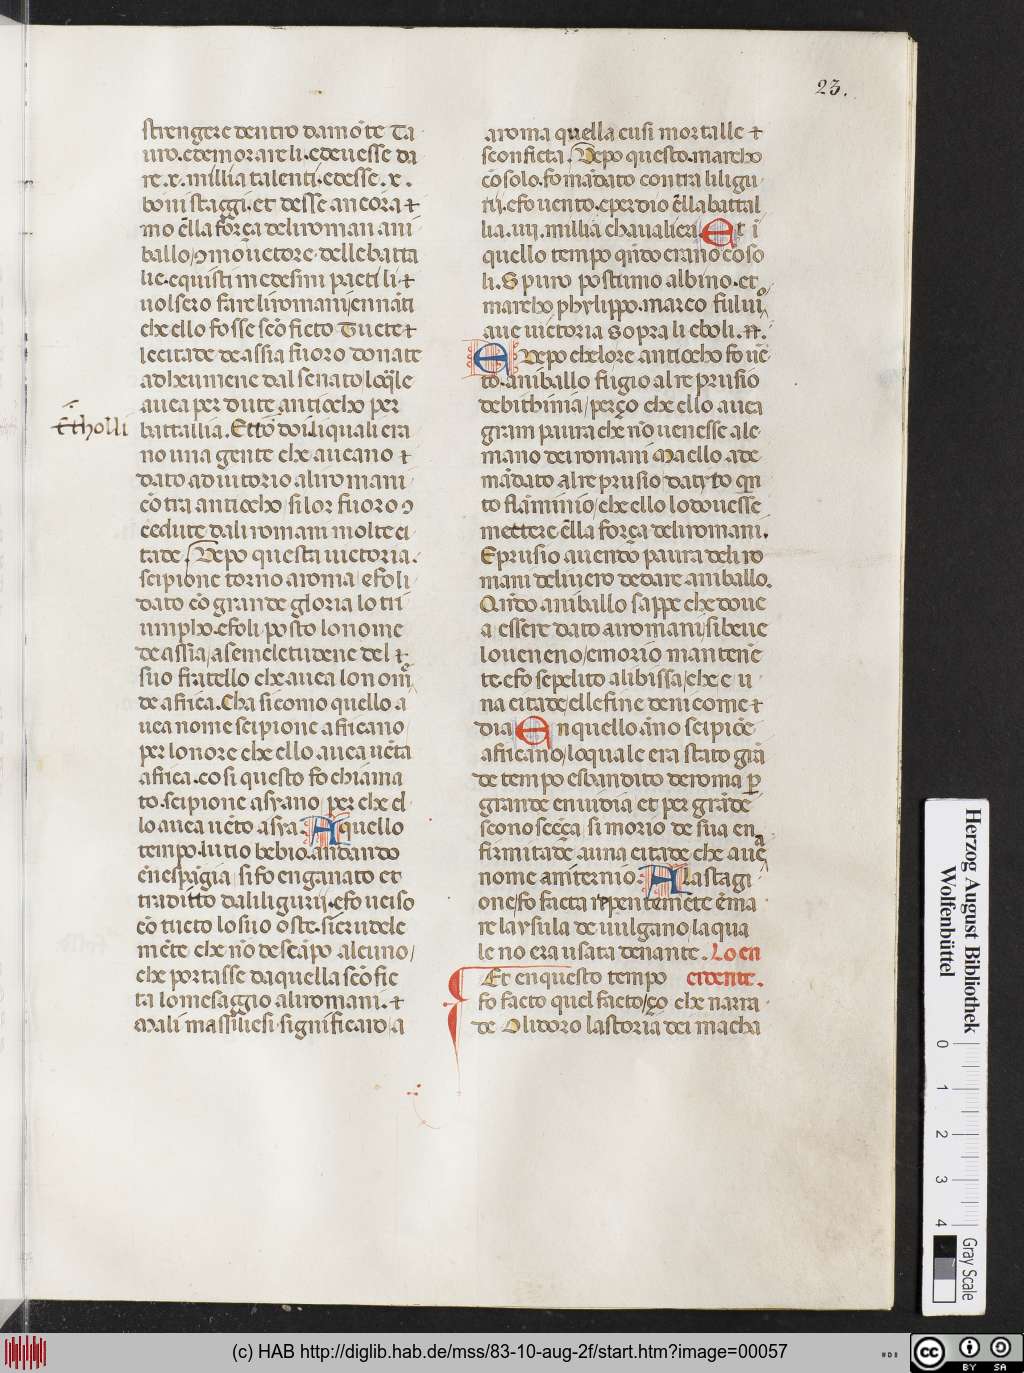 23.
strengere dentro damōte Ta
uro. edemorareli. edeuesse da
re .x. millia talenti. edesse .x.
boni staggi. et desse ancora +
mo ēlla força deliromani ani
ballo, ꝯmouetore delle batta
lie. equisti medesmi pacti li +
uolsero fare li romani ennāti
che ello fosse scōficto Tucte +
lecitade de assia fuoro donate
adheumene dal senato loq̄le
auea per duce anticcho per
battallia. Ettō doili quali era
no una gente che aueano +
dato adiutorio aliromani
cōtra anticcho, si lor fuoro ꝯ
cedute dali romani molte ci
tade. Depo questa uictoria.
scipione torno aroma, efoli
dato cō grande gloria lo tri
umpho. efoli posto lo nome
de assia, asemeletudene del +
suo fratello che auea lo nom̄
de africa. Cha si como quello a
uea nome scipione africano
per lonore che ello auea uēta
africa. cosi questo fo chiama
to. scipione asyano, per che el
lo auea uēto asya. A quello
tempo. lutio bebio. andando
ēnespāgia, si fo enganato et
traditto dali liguri, efo uciso
cō tucto lo suo oste. si crudele
mēte che nō de scāpo alcuno,
che portasse da quella scōfic
ta lo mesaggio ali romani. +
Mali massiliesi significaro, a
Etholli
aroma quella cusi mortalle +
sconficta. Depo questo. marcho
cōsolo. fo mādato contra li ligu
rij. efo uento. e perdio ēlla battal
lia .iiij. millia chaualieri. Et ī
quello tempo qn̄do erano cōso
li. Spurio postumio albino. et
marcho phylippo. marco fului°
aue uictoria sopra li eboli. +.
Depo che lo re anticcho fo uē
to. aniballo fugio al re prusio
de bithinia, perço che ello auea
gram paura che nō uenesse ale
mano dei romani Ma ello ade
mādato al re prusio da tyto qn̄
to flāminio, che ello lo douesse
mettere ēlla força deli romani.
E prusio auendo paura deli ro
mani deliuero de dare aniballo.
Qn̄do aniballo sappe che doue
a essere dato a romani, si beue
lo ueneno, e morio mantenē
te. efo sepelito alibissa, che e u
na citade, elle fine de nicome +
dia. En quello āno scipiōe
africano, loquale era stato grā
de tempo esbandito de roma p̄
grande enuidia et per grāde
sconosceça, si morio de sua en
firmitade auna citade che aue
nome amiternio. Ala stagi
one, fo facta repentemēte ēma
re la ysula de uulgano, laqua
le no era usata denante. Lo en
Et en questo tempo cidente.
fo facto quel facto, ço che narra
de Olidoro la storia dei macha
Herzog August Bibliothek
Wolfenbüttel
0 1 2 3 4
Gray Scale
(c) HAB http://diglib.hab.de/mss/83-10-aug-2f/start.htm?image=00057
cc BY SA